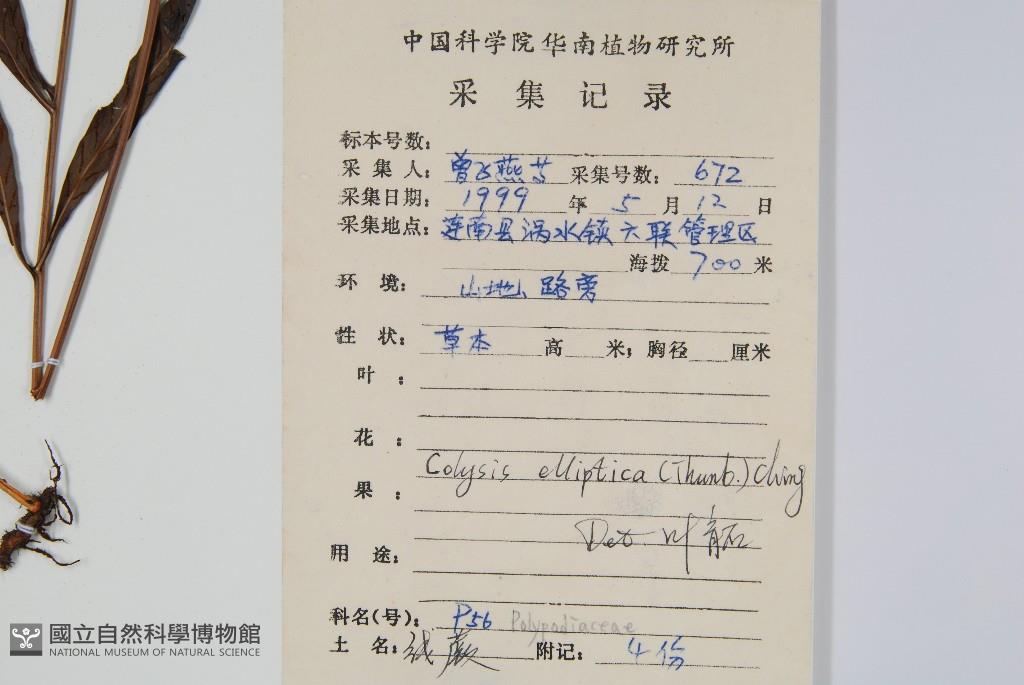 中国科学院华南植物研究所
采集记录
标本号数:
采集人: 曾飞燕等 采集号数: 672
采集日期: 1999 年 5 月 12 日
采集地点: 连南县涡水镇六联管理区
海拨 700 米
环境: 山地、路旁
性状: 草本 高 米; 胸径 厘米
叶:
花:
Colysis elliptica (Thunb.) Ching
果:
Det. 叶
用途:
科名(号): P56 Polypodiaceae
土名: 线蕨 附记: 4份
國立自然科學博物館
NATIONAL MUSEUM OF NATURAL SCIENCE